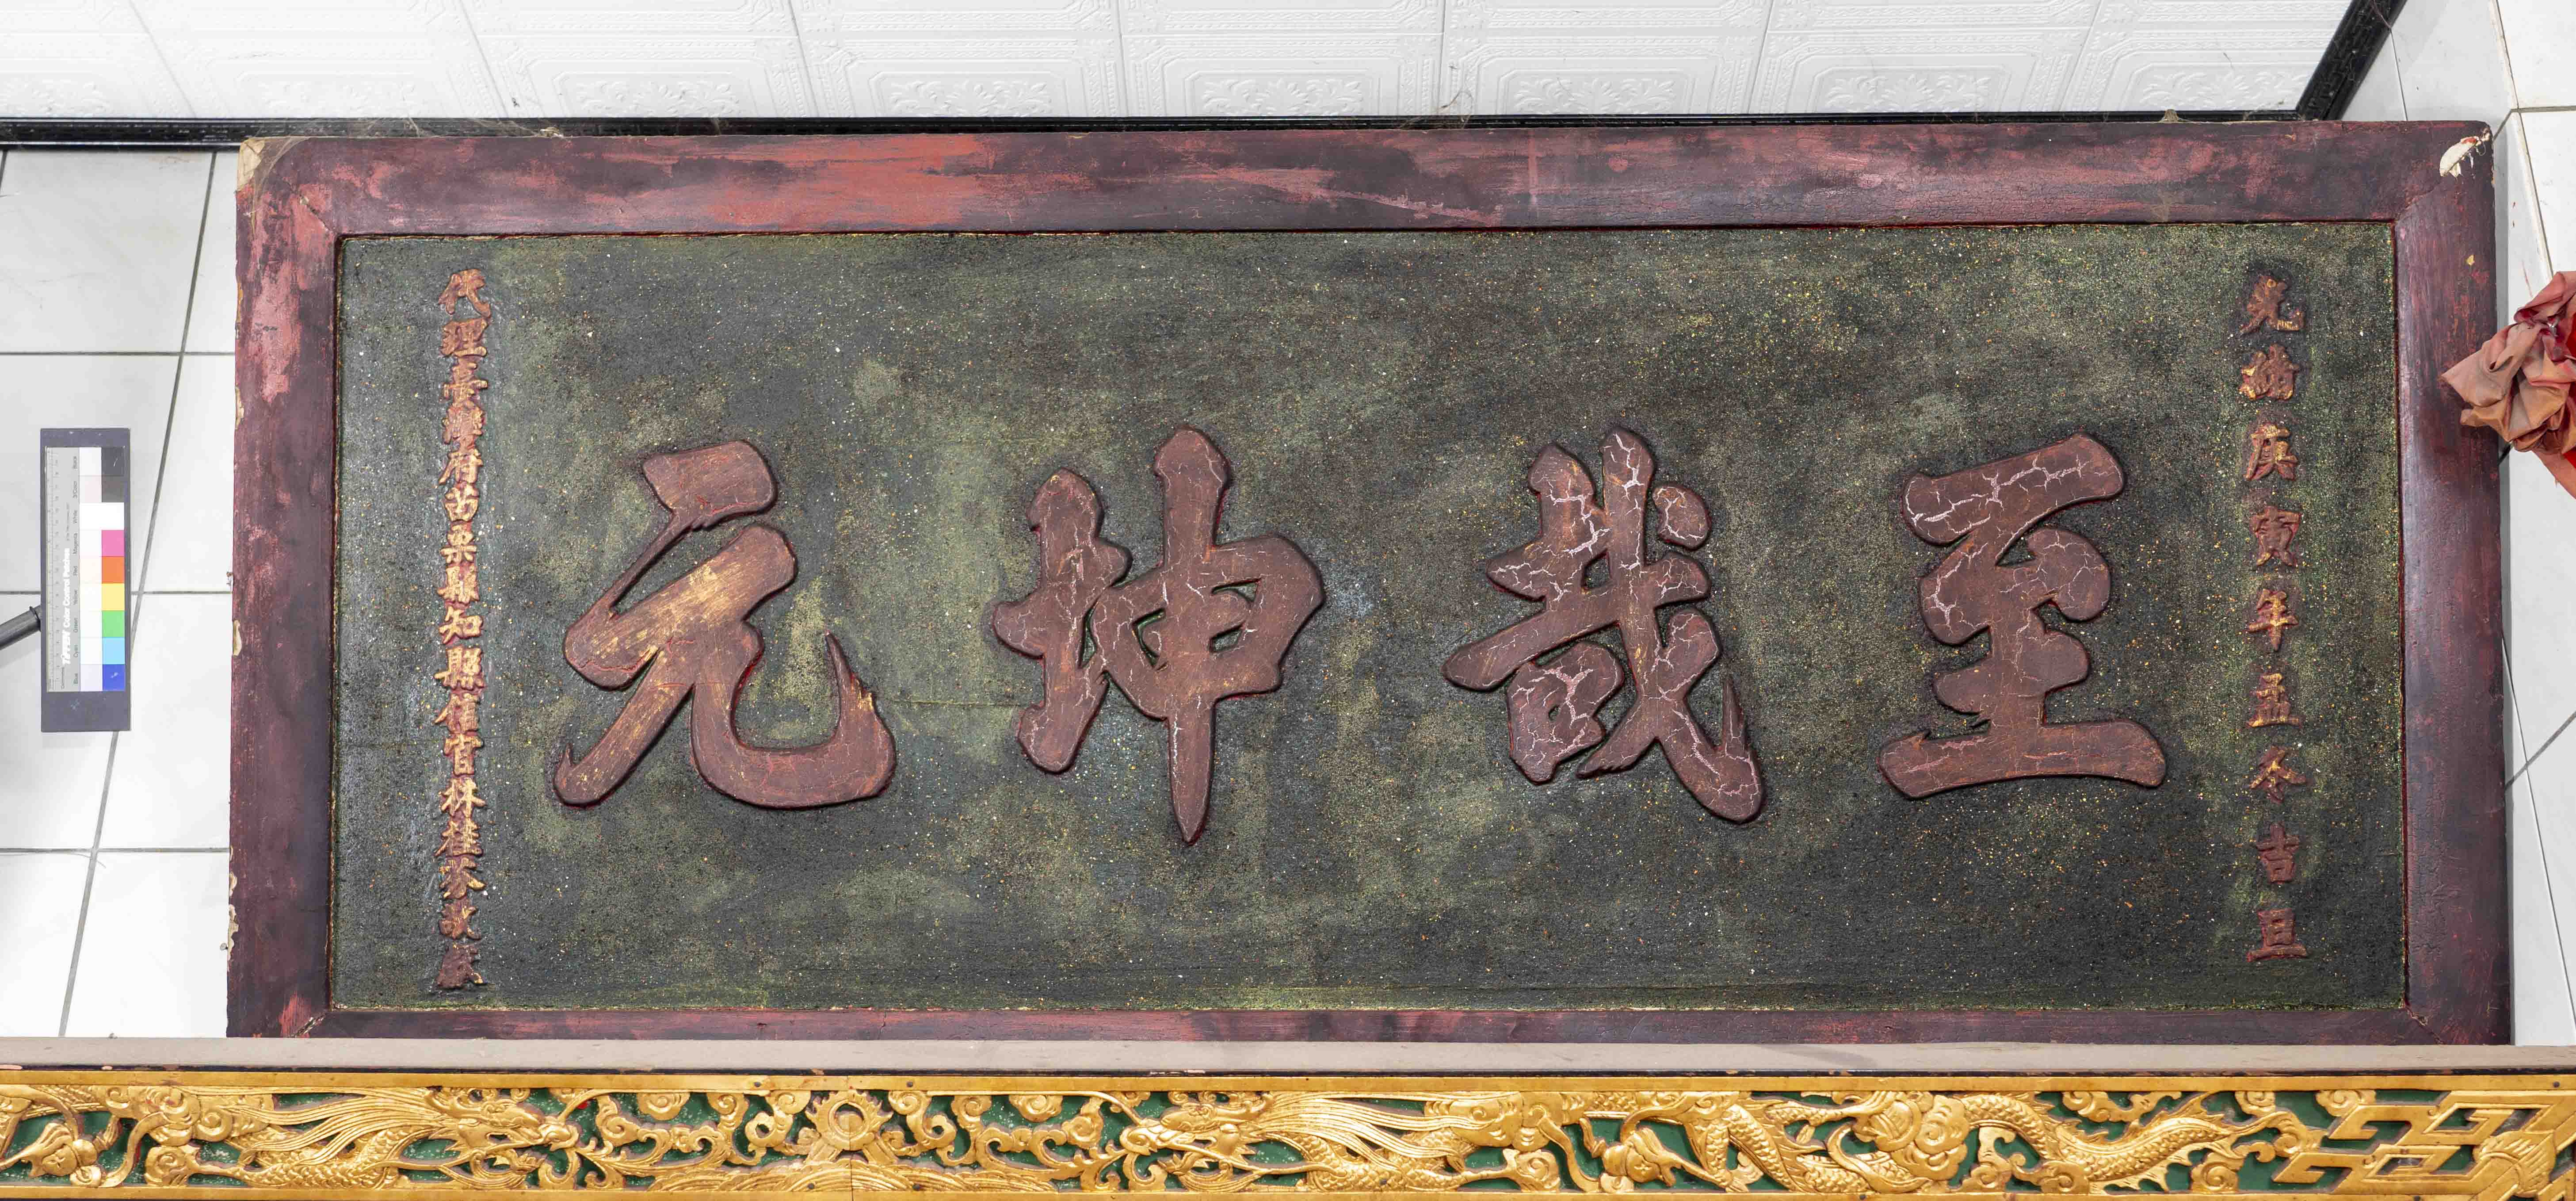 光緒庚寅年孟冬吉旦
至哉坤元
代理臺灣府苗栗縣知縣官林桂芬敬
Color Control Patches
Blue Cyan Green Yellow Red Magenta White 3/Color Black